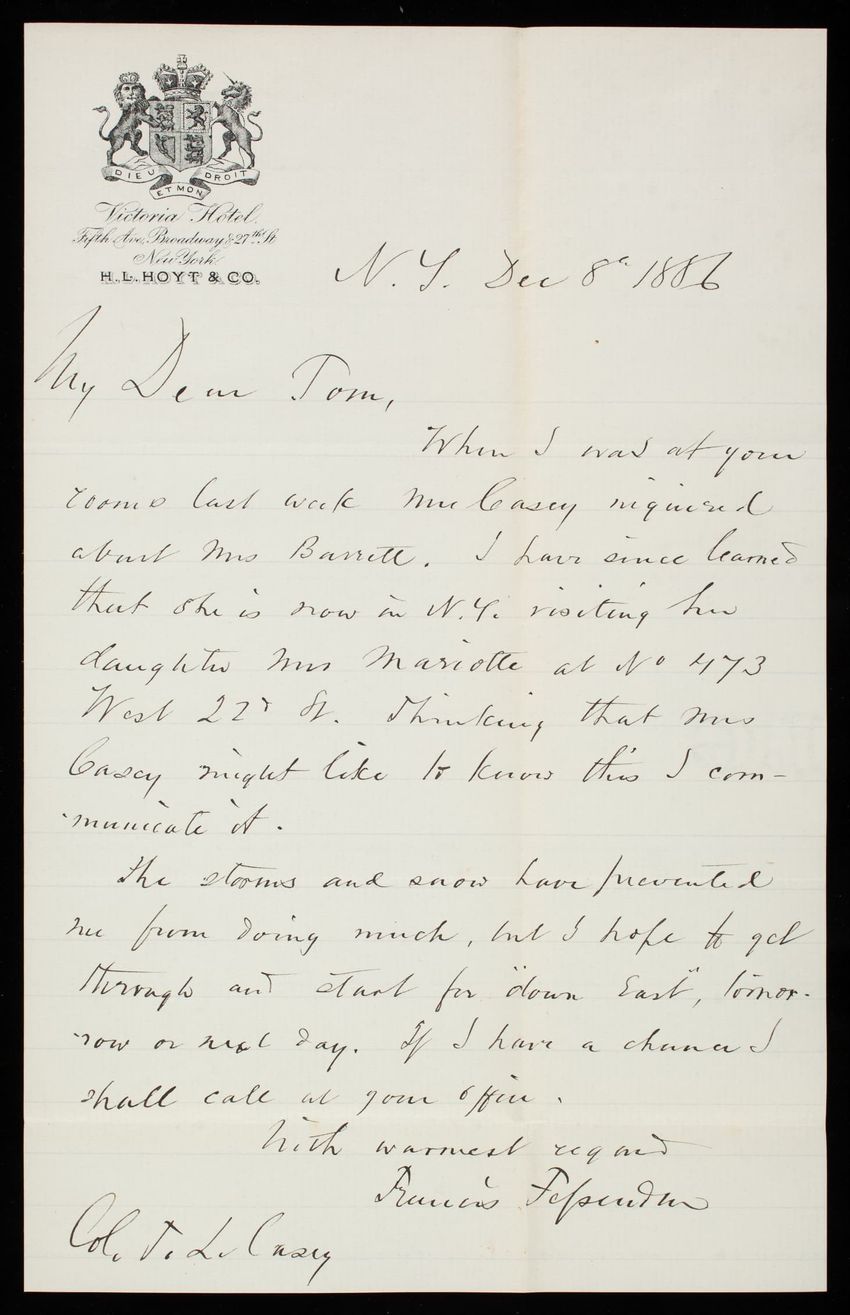 DIEU ET MON DROIT
Victoria Hotel.
Fifth Ave, Broadway & 27th St
New York
H. L. HOYT & CO.
N. Y. Dec 8th 1886
My Dear Tom,
When I was at your
rooms last week Mrs Casey inquired
about Mrs Barrett. I have since learned
that she is now in N.Y. visiting her
daughter Mrs Mariotte at No 473
West 22d St. Thinking that Mrs
Casey might like to know this I com-
municate it.
The storms and snow have prevented
me from doing much, but I hope to get
through and start for "down East", tomor-
row or next day. If I have a chance I
shall call at your office.
With warmest regard
Francis Fessenden
Col. T. L. Casey